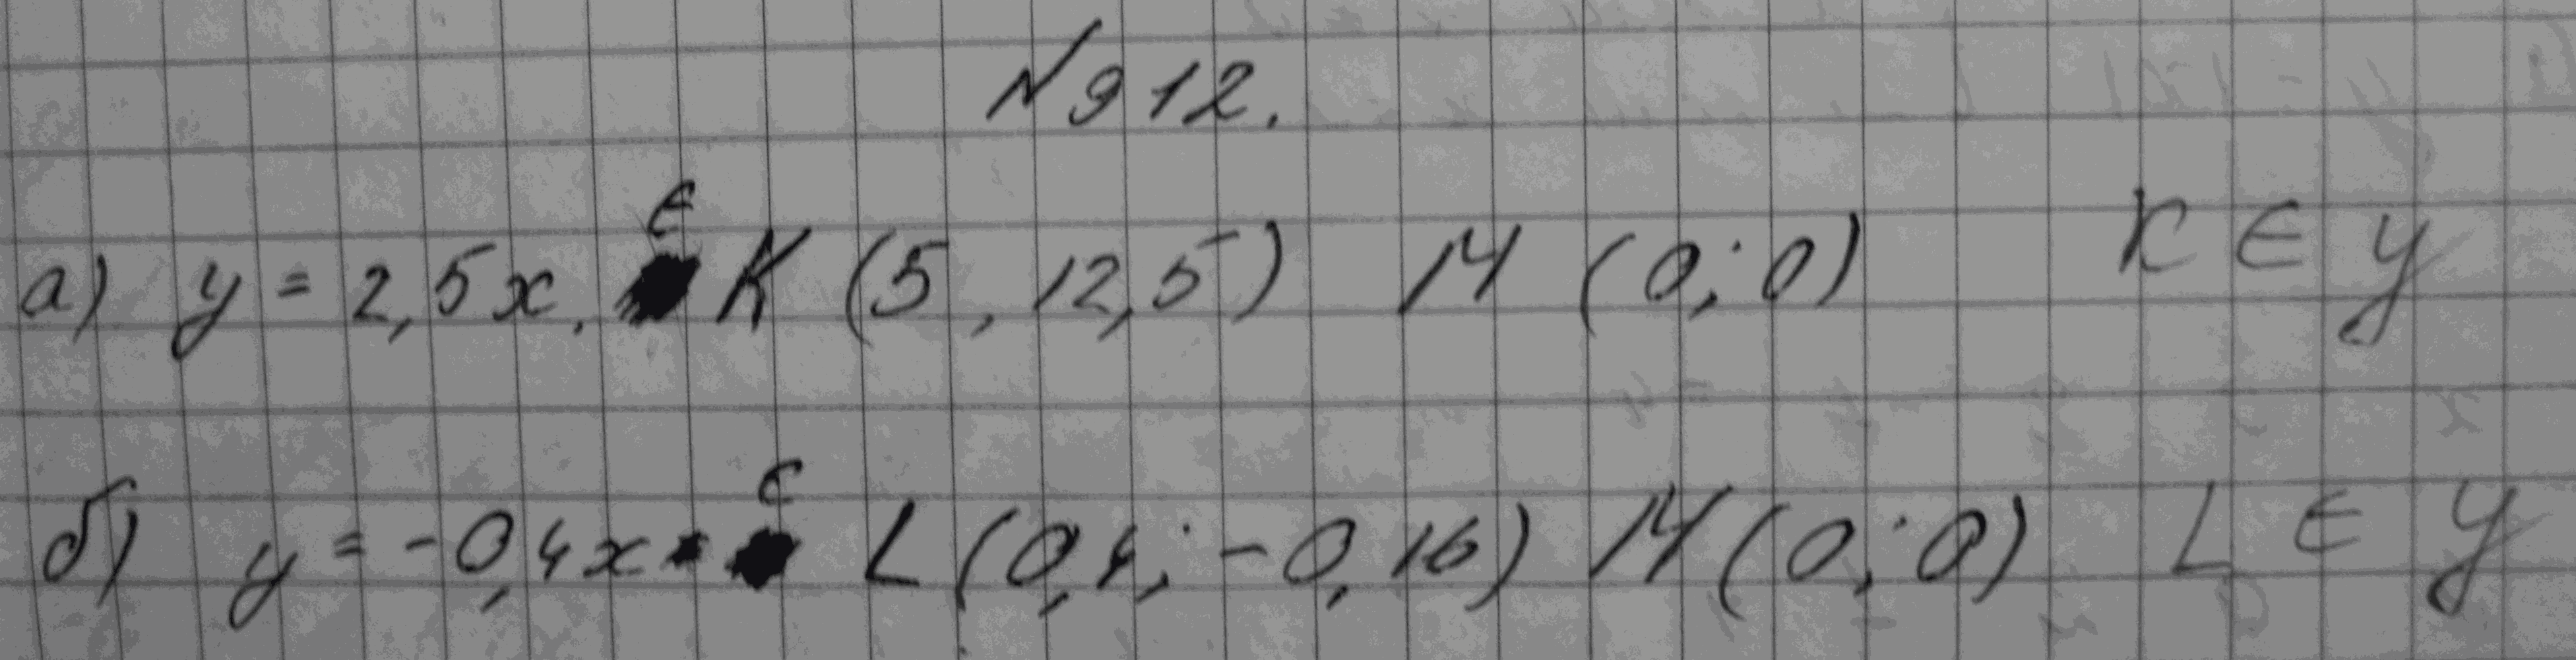 №912.
а) y = 2,5x. ∈ K (5, 12,5) M (0; 0) K ∈ y
б) y = -0,4x ∈ L (0,4; -0,16) M (0; 0) L ∈ y